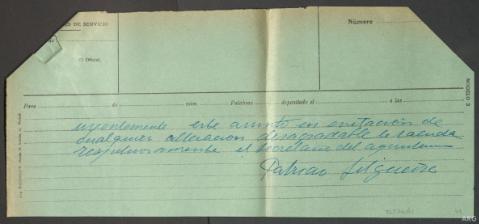 DE SERVICIO
El Oficial,
Número
MODELO 3
Para de núm. Palabras depositado el a las
urgentemente este asunto en evitación de
cualquier alteracion desagradable le saluda
respetuosamente el secretario del
ARG